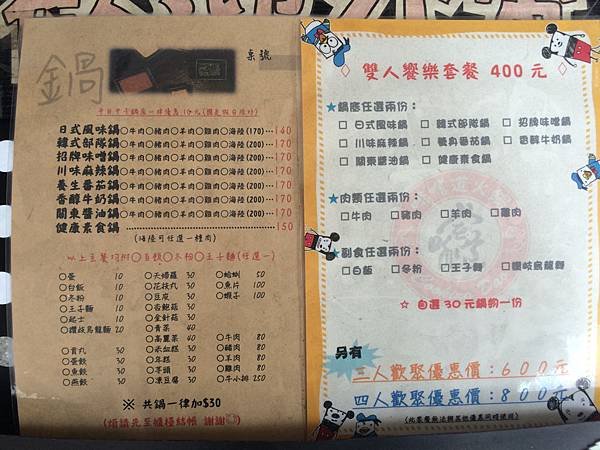 鍋
桌號
日式風味鍋○牛肉○豬肉○羊肉○雞肉○海陸(170)…140
韓式部隊鍋○牛肉○豬肉○羊肉○雞肉○海陸(200)…170
招牌味噌鍋○牛肉○豬肉○羊肉○雞肉○海陸(200)…170
川味麻辣鍋○牛肉○豬肉○羊肉○雞肉○海陸(200)…170
養生番茄鍋○牛肉○豬肉○羊肉○雞肉○海陸(200)…170
香醇牛奶鍋○牛肉○豬肉○羊肉○雞肉○海陸(200)…170
關東醬油鍋○牛肉○豬肉○羊肉○雞肉○海陸(200)…170
健康素食鍋 150
(海陸可任選一種肉)
以上主餐均附○白飯○冬粉○王子麵(任選一)
○蛋 10
○白飯 10
○冬粉 10
○王子麵 10
○起士 10
○讚岐烏龍麵 20
○貢丸 30
○蛋餃 30
○魚餃 30
○燕餃 30
○天婦羅 30
○花枝丸 30
○豆皮 30
○杏鮑菇 30
○金針菇 30
○青菜 40
○高麗菜 40
○米血糕 30
○年糕 30
○芋頭 30
○凍豆腐 30
○蛤蜊 50
○魚片 100
○蝦子 100
○牛肉 80
○豬肉 80
○羊肉 80
○雞肉 80
○牛小排 250
※ 共鍋一律加$30
(煩請先至櫃檯結帳 謝謝)
雙人饗樂套餐 400 元
★鍋底任選兩份：
□ 日式風味鍋 □ 韓式部隊鍋 □ 招牌味噌鍋
□ 川味麻辣鍋 □ 養身番茄鍋 □ 香醇牛奶鍋
□ 關東醬油鍋 □ 健康素食鍋
★肉類任選兩份：
□牛肉 □豬肉 □羊肉 □雞肉
★副食任選兩份：
□白飯 □冬粉 □王子麵 □讚岐烏龍麵
☆ 自選 30 元鍋物一份
另有
三人歡聚優惠價：600元
四人歡聚優惠價：800元
(此套餐無法與其他優惠同時使用)